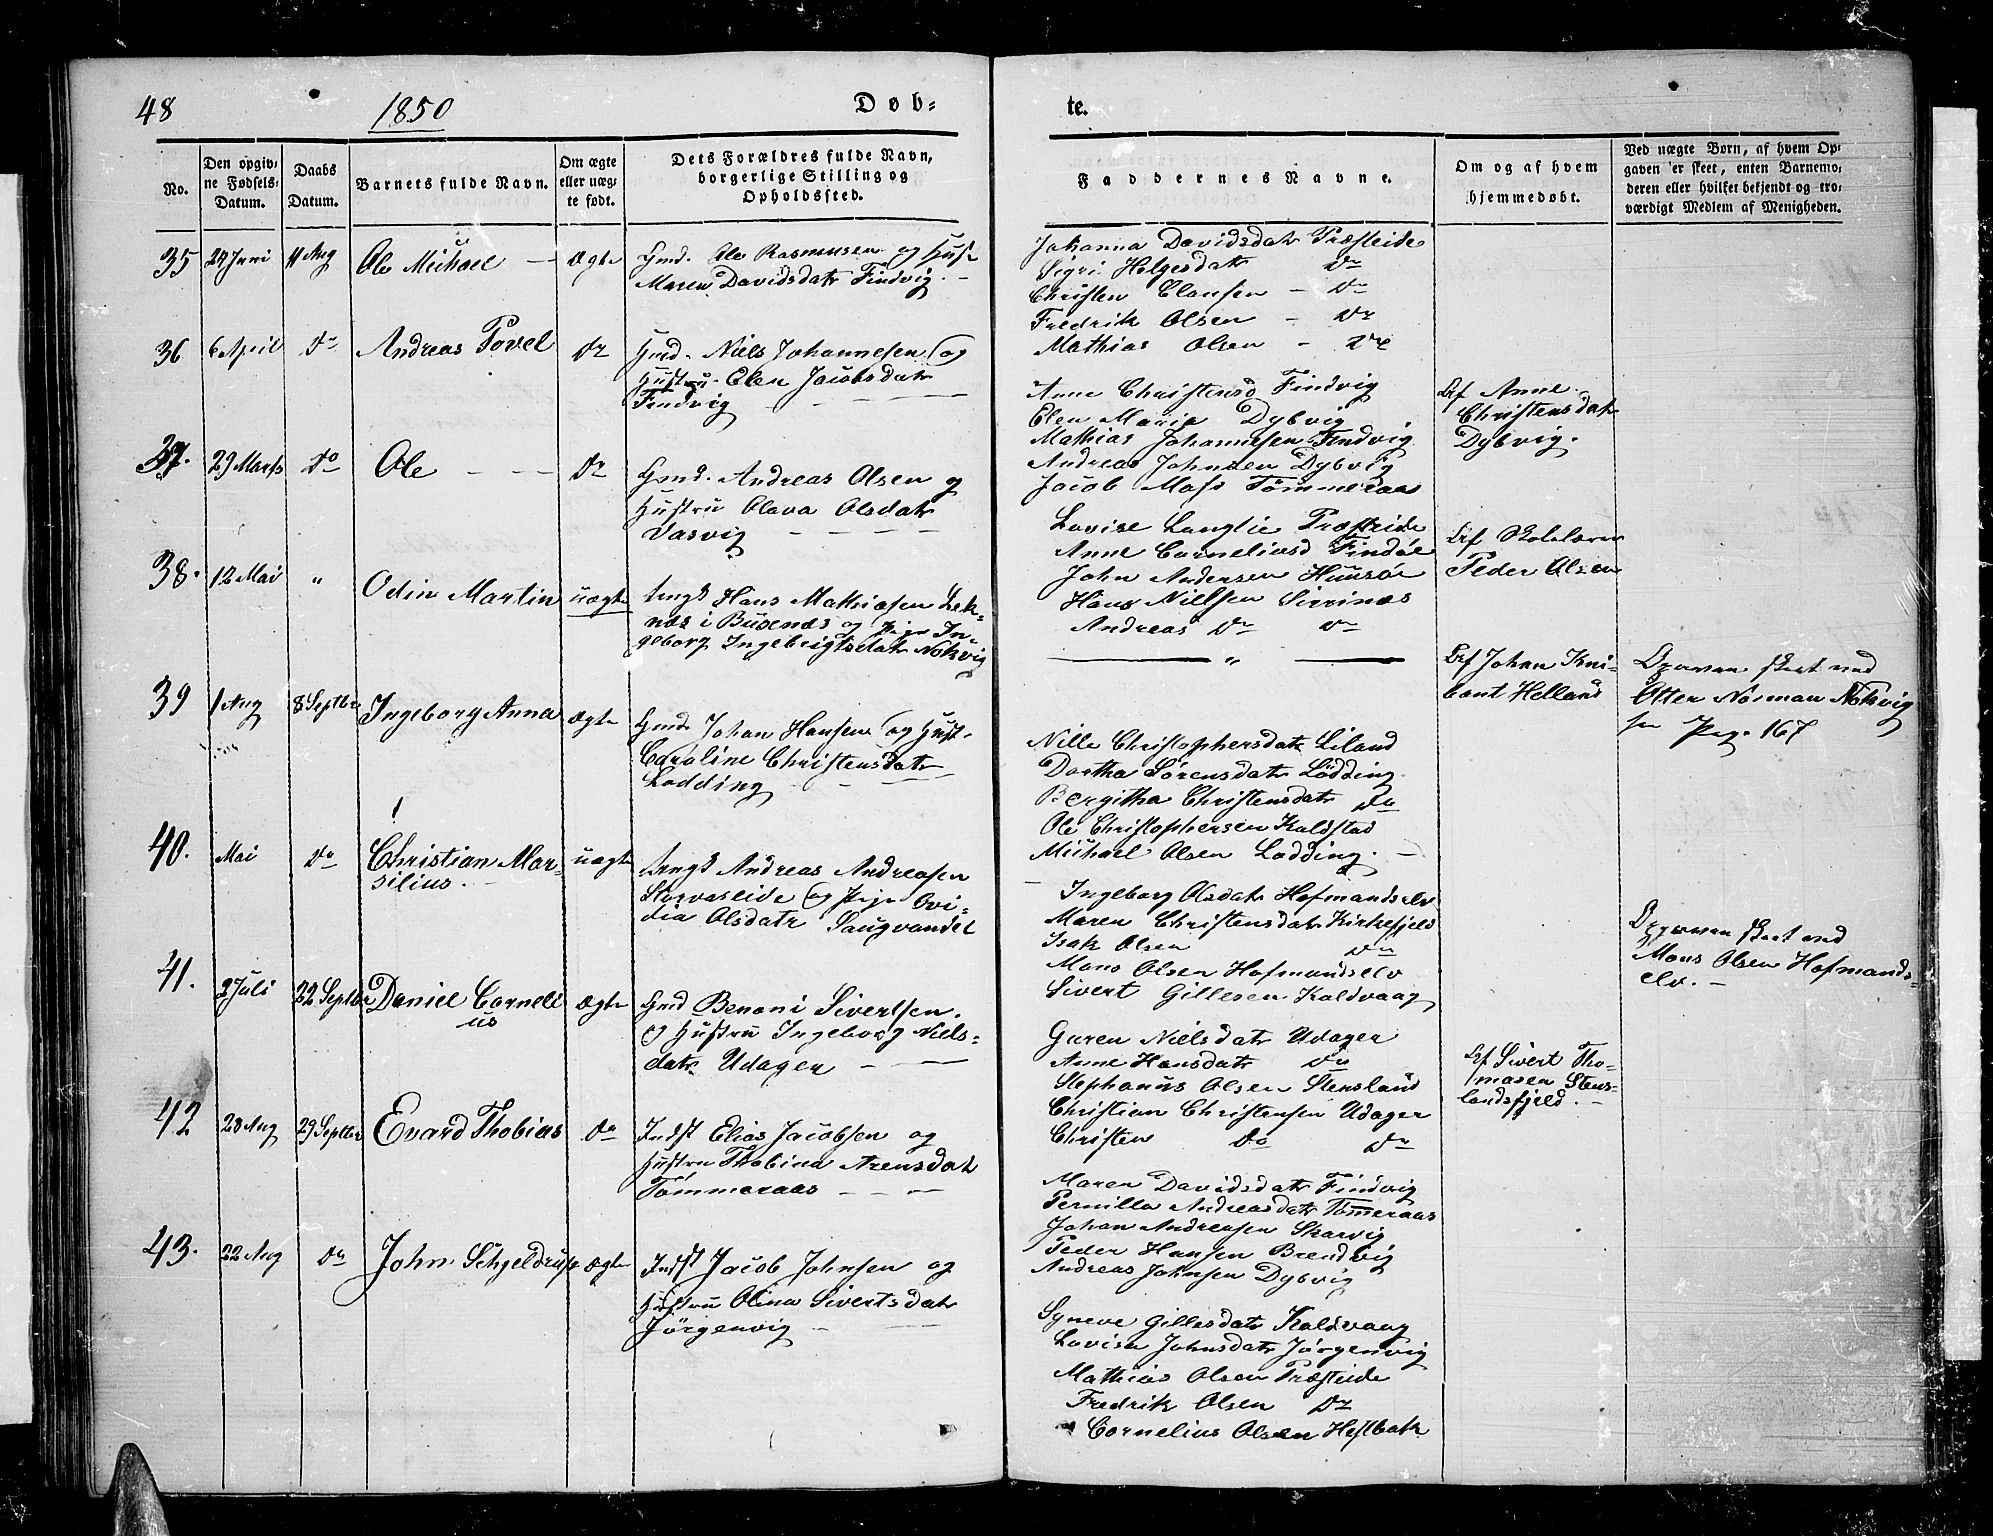 48
1850
Døb-
te.
No.
Den opgiv-
ne Fødsels-
Datum.
Daabs
Datum.
Barnets fulde Navn.
Om ægte
eller uæg-
te født.
Dets Forældres fulde Navn,
borgerlige Stilling og
Opholdssted.
Faddernes Navne.
Om og af hvem
hjemmedøbt.
Ved uægte Børn, af hvem Op-
gaven er skeet, enten Barnemo-
deren eller hvilket bekjendt og tro-
værdigt Medlem af Menigheden.
35 29 Juni 11 Aug Ole Michael — ægte
Gmd. Ole Rasmusen og Hust
Maren Davidsdatr Findvig. -
Johanna Davidsdatr Præsteide
Sigri Helgesdatr Do
Christen Clausen - Do
Fredrik Olsen - Do
Mathias Olsen - Do
36 6 April Do Andreas Povel Do
Gmd. Niels Johannesen og
Hustru Elen Jacobsdatr
Findvig
Anne Christensd Findvig
Elen Marie Dybvig
Mathias Johannesen Findvig
Andreas Johnsen Dybvig
Jacob Tømmeraas
Af Anne
Christensdatr
Dybvig.
37. 29 Marts Do Ole - - - Do
Gmd. Andreas Olsen og
Hustru Olava Olsdatr
Vasvig
Lovise Langlie Præsteide
Anne Corneliusd Findøe
John Andersen Hunsør
Hans Nielsen Sirinæs
Andreas Do Do
Af Skolelærer
Peder Olsen
38. 12 Mai " Odin Martin uægte
Ungk Hans Mathiasen Lek-
næs i Buxnæs og Pige In-
geborg Ingebrigtsdatr Nokvig
— " —
Af Johan Kni-
Helland
Opgaven skeet ved
Otter Norman Nokvig
see Pag. 167
39 1 Aug 8 Septbr Ingeborg Anna ægte
Gmd. Johan Hansen og Hust.
Caroline Christensdatr
Lødding
Nille Christophersdatr Liland
Dorthea Sørensdatr Lødding
Bergitha Christensdatr do
Ole Christophersen Kaldstad
Michael Olsen Lødding. -
40. Mai do Christian Mar-
silius. uægte
Ungk Andreas Andreasen
Storvaseide og Pige Ovi-
dia Olsdatr Laugvandet
Ingeborg Olsdatr Hofmandselv
Maren Christensdatr Kirkefjeld
Isak Olsen Do
Mons Olsen Hofmandselv
Sivert Gillesen Kaldvaag
Opgaven skeet ved
Mons Olsen Hofmands-
elv. -
41. 2 Juli 22 Septbr Daniel Corneli
us ægte
Gmd Benoni Sivertsen.
og Hustru Ingeborg Niels-
datr Udager
Guren Nielsdatr Udager
Anne Hansdatr Do
Stephanus Olsen Stensland
Christian Christensen Udager
Christen do Do
Af Sivert Tho-
masen Stens-
landsfjeld. -
42 28 Aug 29 Septbr Evard Thobias do
Indst Elias Jacobsen og
Hustru Thobina Arensdatr
Tømmeraas
Maren Davidsdatr Findvig
Pernilla Andreasdatr Tømeraas
Johan Andreasen Skarvig
Peder Hansen Brendvig
Andreas Johnsen Dybvig
43. 22 Aug Do John Schjeldrup ægte
Indst Jacob Johnsen og
Hustru Olina Sivertsdatr
Jørgenvig
Syneve Gillesdatr Kaldvaag
Lovise Johnsdatr Jørgenvig
Mathias Olsen Præsteide
Fredrik Olsen Do
Cornelius Olsen Hestbak